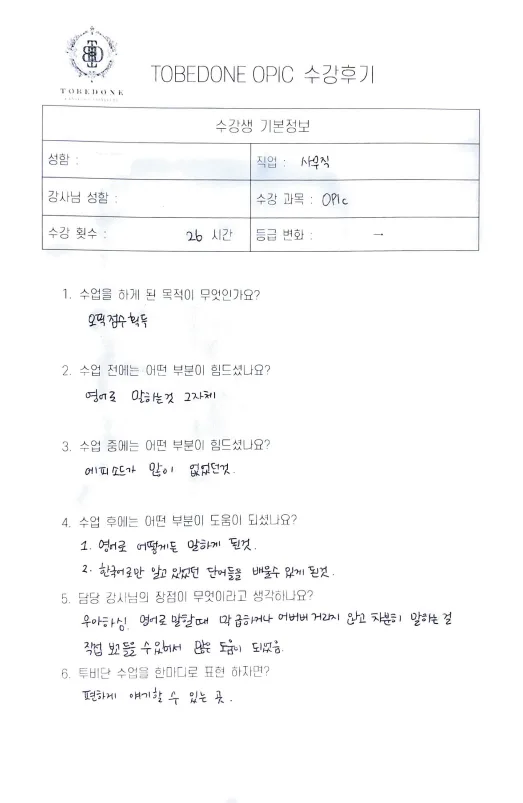 TOBEDONE
TOBEDONE OPIC 수강후기
수강생 기본정보
성함 :
직업 : 사무직
강사님 성함 :
수강 과목 : OPIc
수강 횟수 : 26 시간
등급 변화 : →
1. 수업을 하게 된 목적이 무엇인가요?
오픽점수획득
2. 수업 전에는 어떤 부분이 힘드셨나요?
영어로 말하는것 그자체
3. 수업 중에는 어떤 부분이 힘드셨나요?
에피소드가 많이 없었던것.
4. 수업 후에는 어떤 부분이 도움이 되셨나요?
1. 영어로 어떻게든 말하게 된것.
2. 한국어로만 알고 있었던 단어들을 배울수 있게 된것.
5. 담당 강사님의 장점이 무엇이라고 생각하나요?
우아하심. 영어로 말할때 막 급하거나 어버버 거리지 않고 차분히 말하는 걸
직접 보고들을 수 있어서 많은 도움이 되었음.
6. 투비단 수업을 한마디로 표현 하자면?
편하게 얘기할 수 있는 곳.